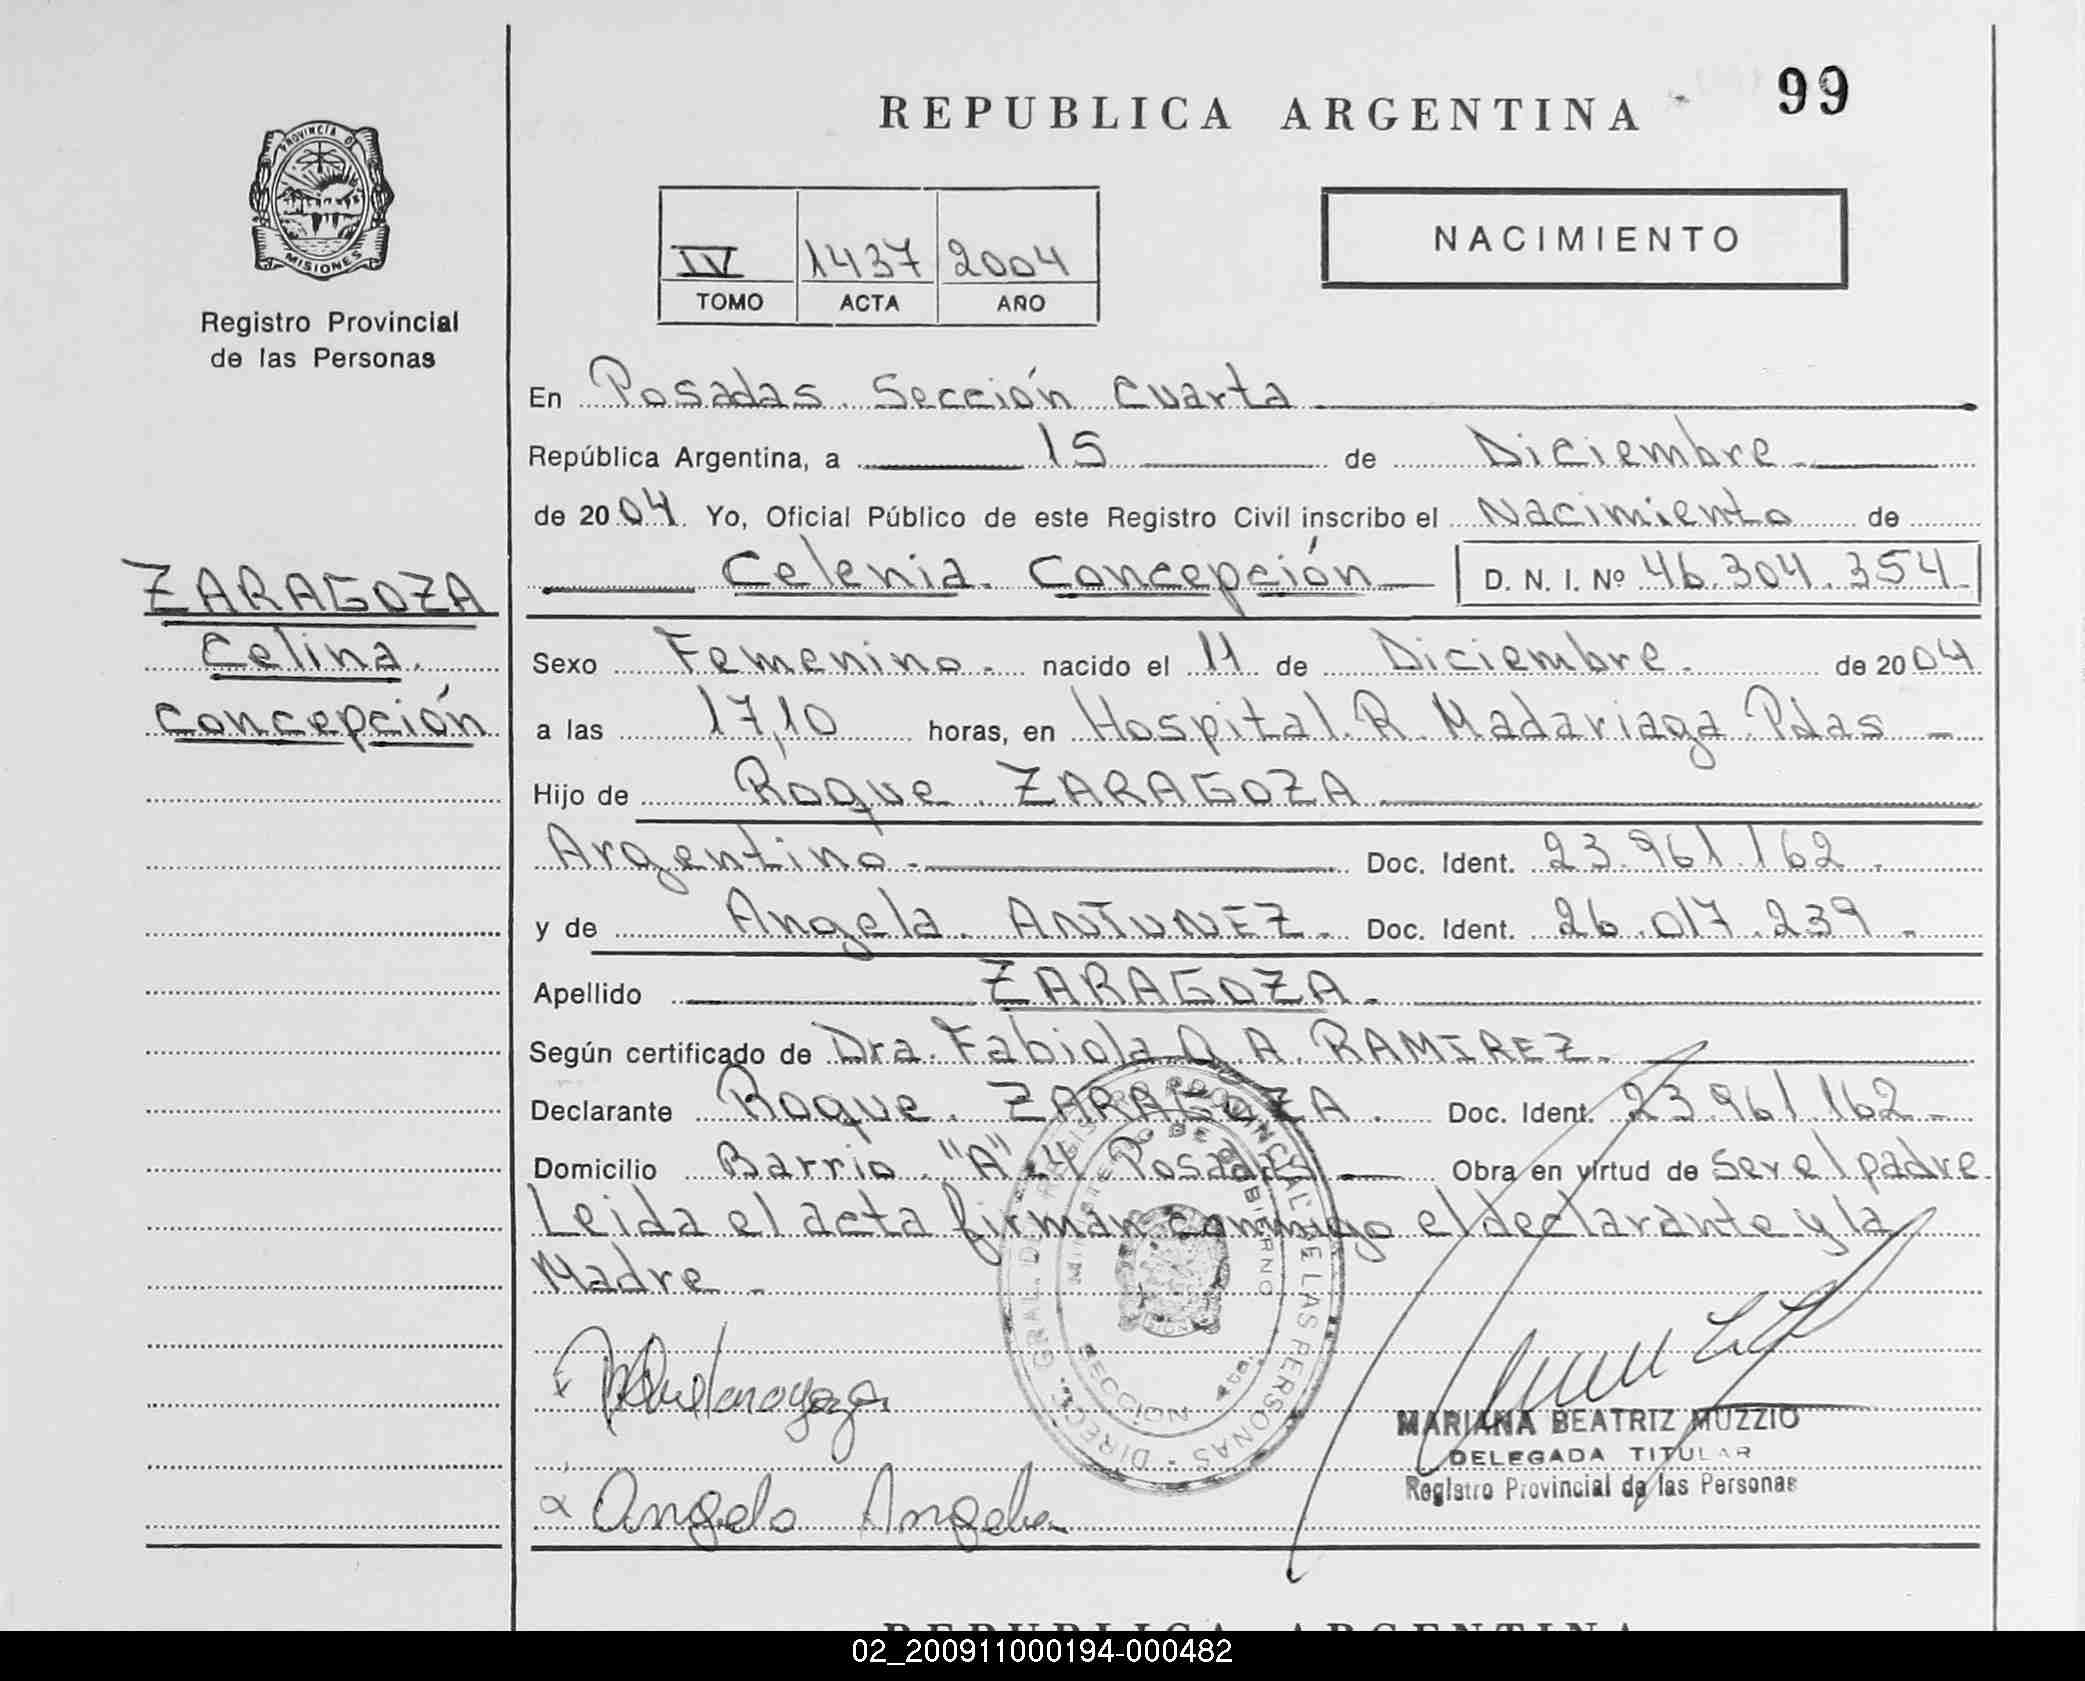 99
REPUBLICA ARGENTINA
PROVINCIA DE
MISIONES
Registro Provincial
de las Personas
NACIMIENTO
IV 1437 2004
TOMO ACTA AÑO
En Posadas. Sección Cuarta
República Argentina, a 15 de Diciembre
de 2004. Yo, Oficial Público de este Registro Civil inscribo el Nacimiento de
Celenia Concepción D. N. I. Nº 46.304.354
ZARAGOZA
Celina
Concepción
Sexo Femenino nacido el 11 de Diciembre de 2004
a las 17,10 horas, en Hospital R. Madariaga Pdas
Hijo de Roque ZARAGOZA
Argentino Doc. Ident. 23.961.162
y de Angela ANTUNEZ Doc. Ident. 26.017.239
Apellido ZARAGOZA
Según certificado de Dra. Fabiola A. RAMIREZ
Declarante Roque ZARAGOZA Doc. Ident. 23.961.162
Domicilio Barrio "A" 4 Posadas Obra en virtud de ser el padre.
Leida el acta firman conmigo el declarante y la
Madre
DIRECC. GRAL. DEL REGISTRO PROVINCIAL DE LAS PERSONAS
MINISTERIO DE GOBIERNO
SECCIÓN 4ta.
MARIANA BEATRIZ MUZZIO
DELEGADA TITULAR
Registro Provincial de las Personas
REPUBLICA ARGENTINA
02_200911000194-000482